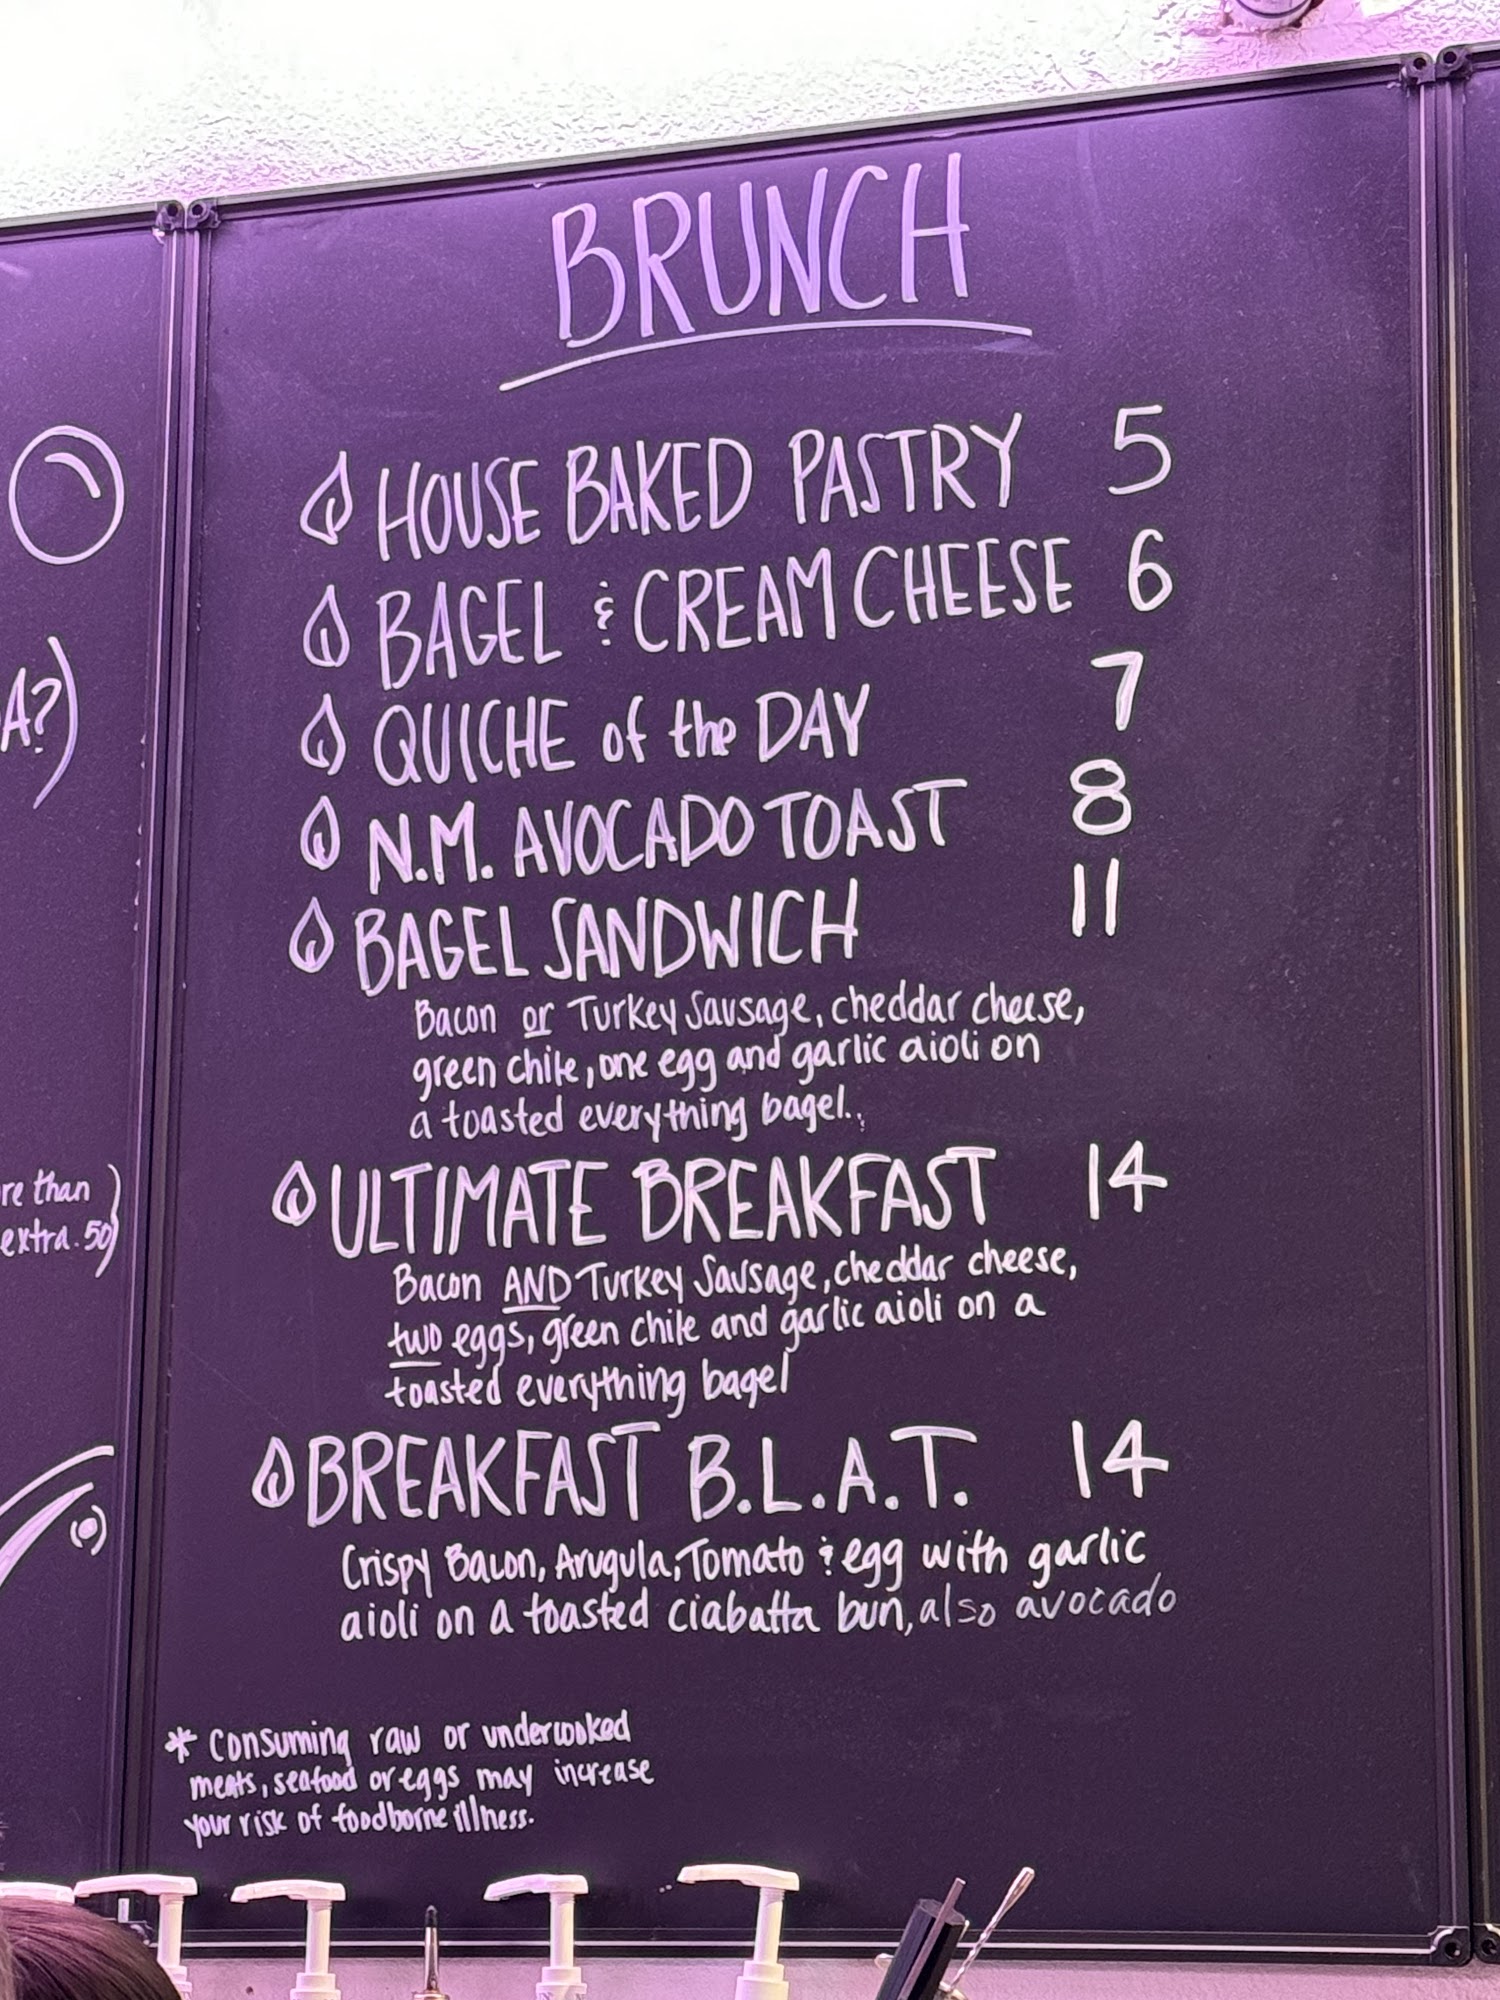 BRUNCH
HOUSE BAKED PASTRY 5
BAGEL & CREAM CHEESE 6
QUICHE of the DAY 7
N.M. AVOCADO TOAST 8
BAGEL SANDWICH 11
Bacon or Turkey Sausage, cheddar cheese,
green chile, one egg and garlic aioli on
a toasted everything bagel..
ULTIMATE BREAKFAST 14
Bacon AND Turkey Sausage, cheddar cheese,
two eggs, green chile and garlic aioli on a
toasted everything bagel
BREAKFAST B.L.A.T. 14
Crispy Bacon, Arugula, Tomato & egg with garlic
aioli on a toasted ciabatta bun, also avocado
* Consuming raw or undercooked
meats, seafood or eggs may increase
your risk of foodborne illness.
A?)
re than
extra .50)